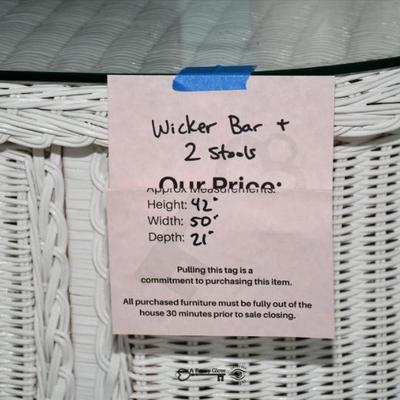 Wicker Bar +
2 Stools
Our Price:
Approx Measurements:
Height: 42"
Width: 50"
Depth: 21"
Pulling this tag is a
commitment to purchasing this item.
All purchased furniture must be fully out of the
house 30 minutes prior to sale closing.